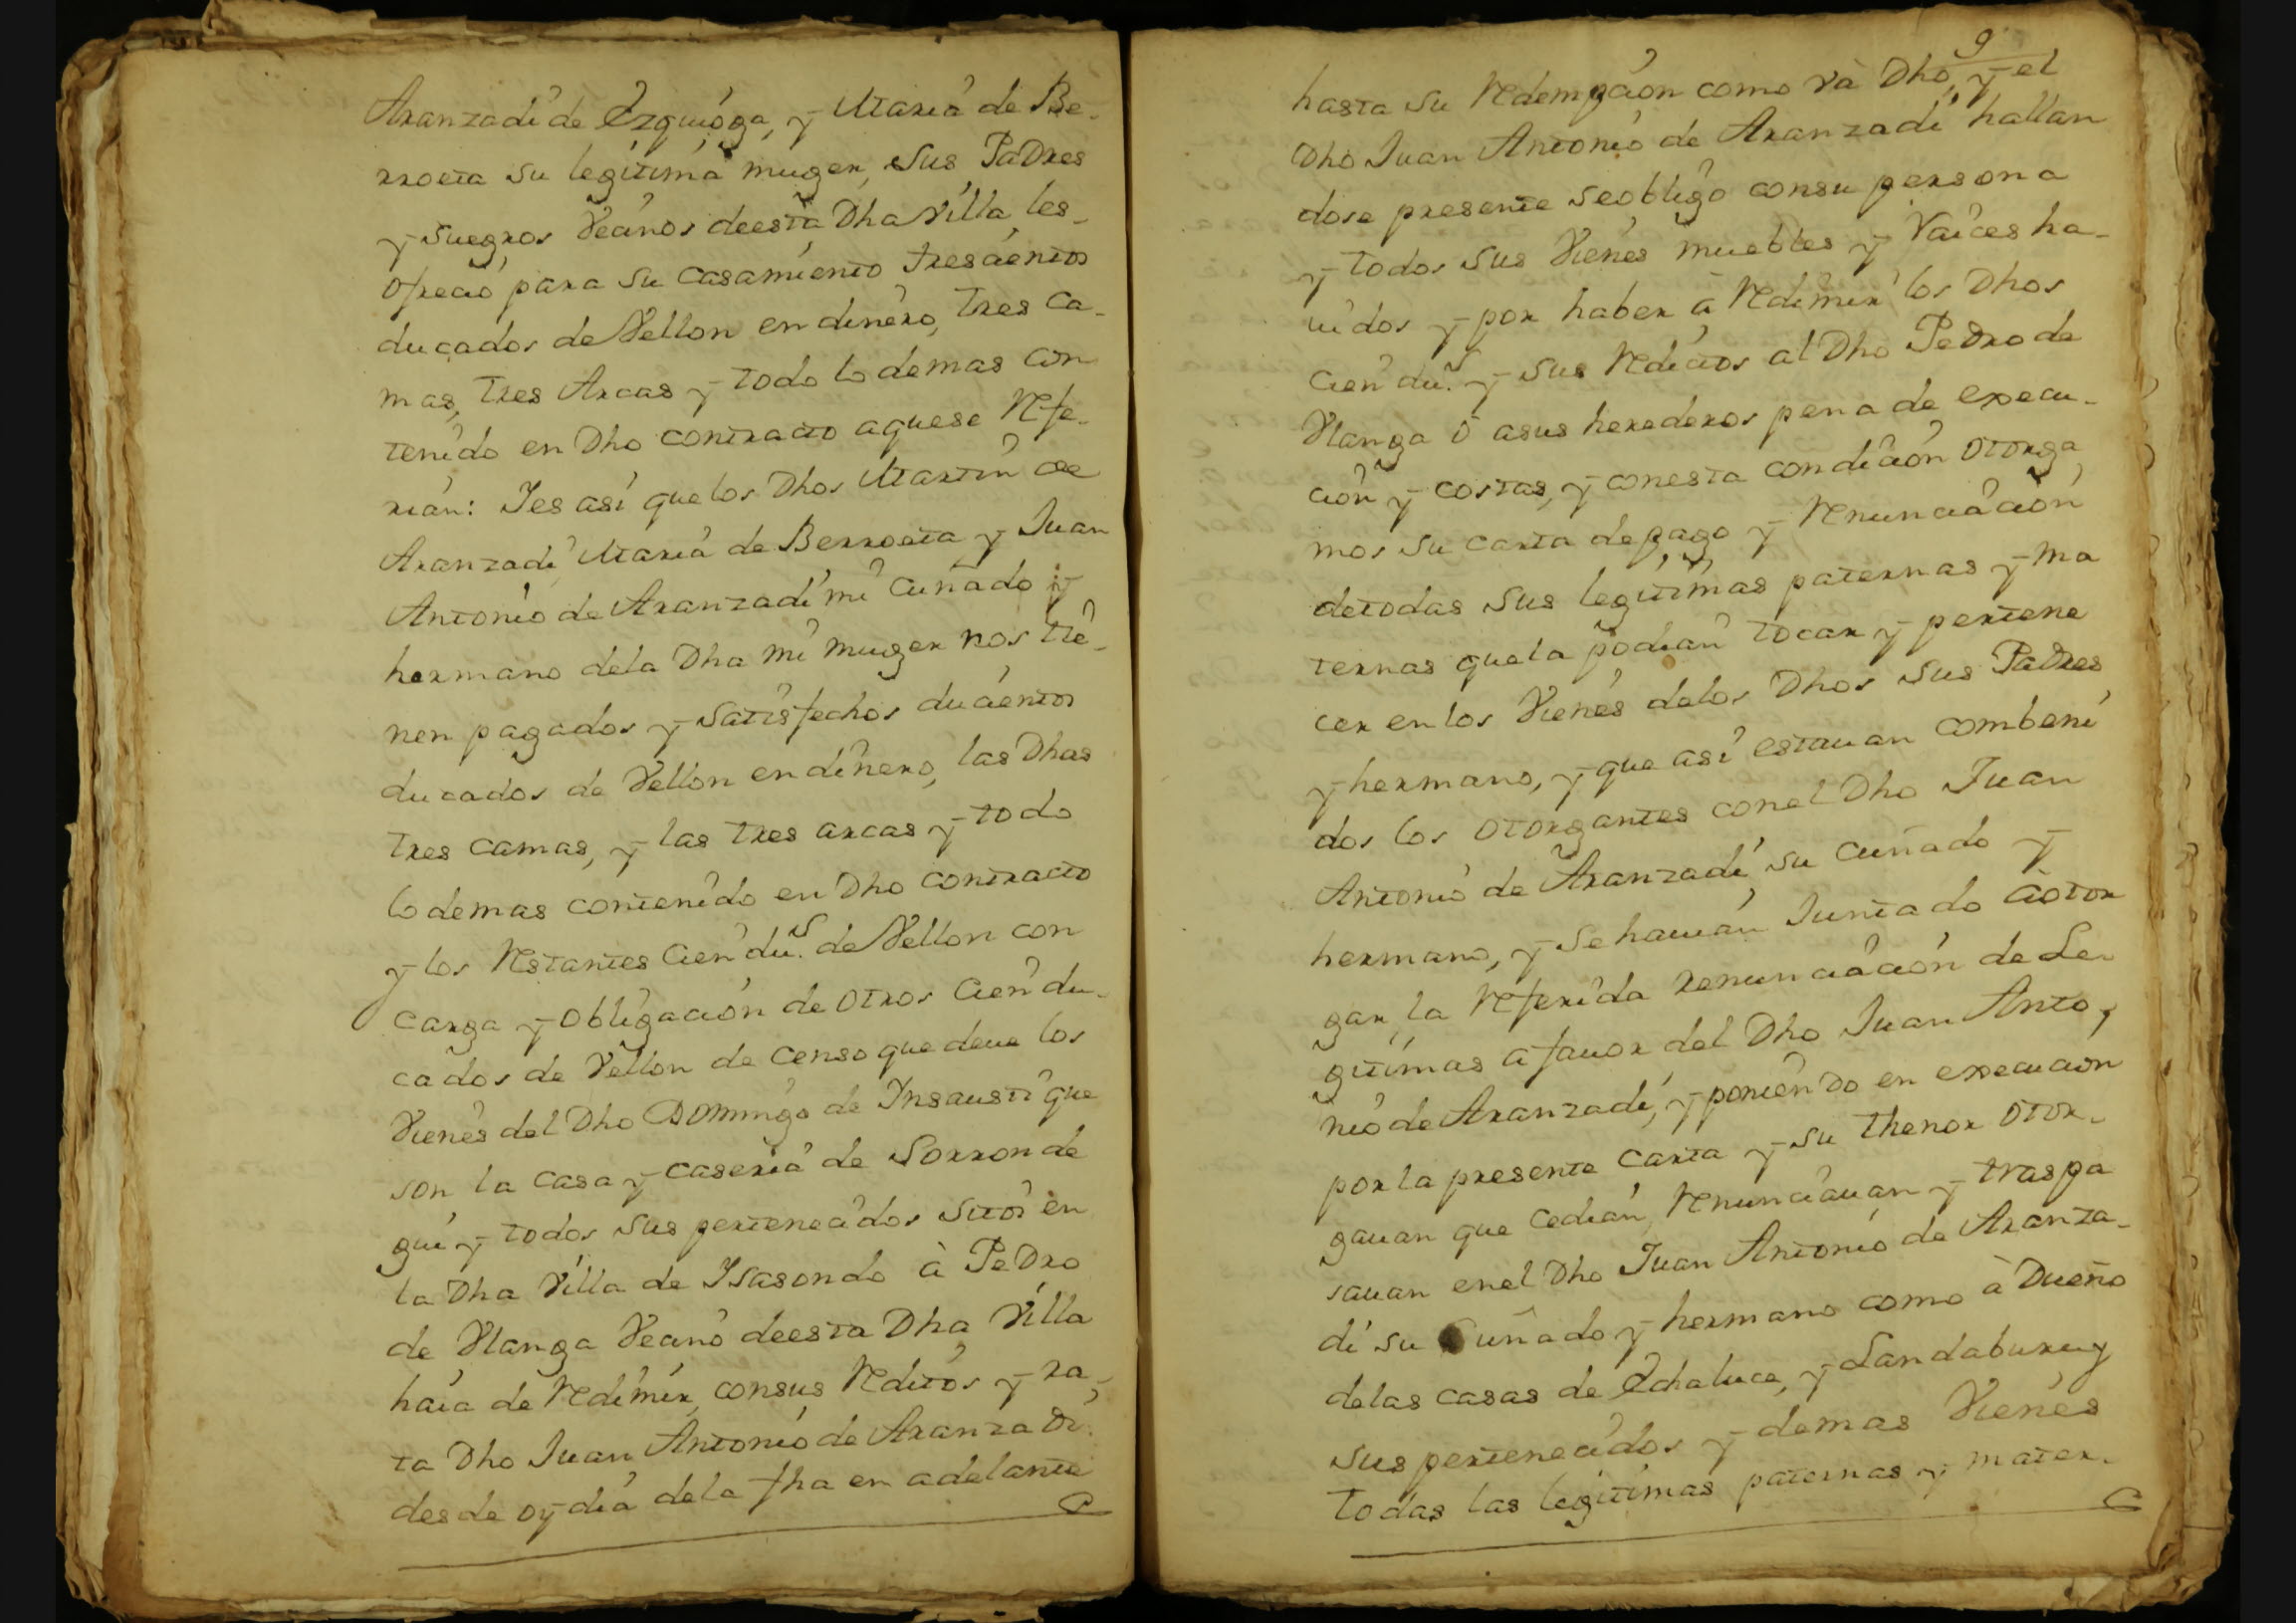 Aranzadi de Ezquioga, y Maria de Be-
rroeta su legitima muger, sus Padres
y suegros Vecinos deesta Dha Villa les-
ofrecio para su casamiento trescientos
ducados de Vellon en dinero, tres ca-
mas, tres Arcas y todo lo demas con
tenido en Dho contracto aquese Refe-
rian: Ies asi que los Dhos Martin de
Aranzadi, Maria de Berroeta y Juan
Antonio de Aranzadi mi cuñado y
hermano dela Dha mi muger nos tie-
nen pagados y satisfechos ducientos
ducados de Vellon en dinero, las Dhas
tres camas, y las tres arcas y todo
lo demas contenido en Dho contracto
y los Restantes cien dus. de Vellon con
carga y obligacion de otros cien du-
cados de Vellon de censo que deve los
Vienes del Dho Domingo de Insausti que
son la casa y caseria de Sorronde
gui y todos sus pertenecidos sitos en
la Dha Villa de Isasondo à Pedro
de Vlanga Vecino deesta Dha Villa
haia de Redimir, consus Reditos y ra-
ta Dho Juan Antonio de Aranzadi
desde oy dia dela fha en adelante
9
hasta su Redempcion como và Dho, y el
Dho Juan Antonio de Aranzadi hallan
dose presente seobligo consu persona
y todos sus Vienes muebles y Raices ha-
uidos y por haber à Redimir los Dhos
cien dus. y sus Reditos al Dho Pedro de
Vlanga ò asus herederos pena de execu-
cion y costas, y conesta condicion otorga
mos su carta de pago y Renunciacion
detodas sus legitimas paternas y ma
ternas quela podian tocar y pertene
cer en los Vienes delos Dhos sus Padres
y hermano, y que asi estauan combeni
dos los otorgantes conel Dho Juan
Antonio de Aranzadi su cuñado y
hermano, y sehauian Juntado àotor
gar la Referida renunciacion de Le-
gitimas à fauor del Dho Juan Anto-
nio de Aranzadi, y poniendo en execucion
por la presente carta y su thenor otor-
gauan que cedian, Renunciauan y traspa
sauan enel Dho Juan Antonio de Aranza-
di su Cuñado y hermano como à Dueño
delas casas de Echaluce, y Landaburu y
sus pertenecidos y demas Vienes
todas las legitimas paternas y mater-